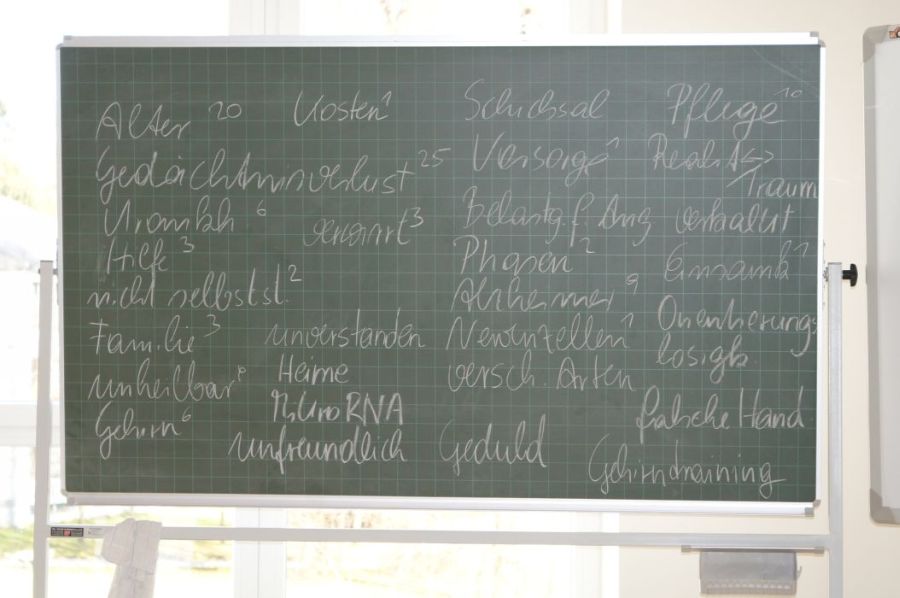 Alter 20
Gedächtnisverlust 25
Krankh 6
Hilfe 3
nicht selbstst. 2
Familie 3
unheilbar
Gehirn 6
Kosten 1
verwirrt 3
unverstanden
Heime
Mikro RNA
unfreundlich
Schicksal
Versorge
Belastg. f. Ang
Phasen 2
Alzheimer 9
Nervenzellen 1
versch. Arten
Geduld
Pflege 10
Realit ↔
Traum
verkalkt
Einsamk 1
Orientierungs
losigk.
falsche Hand
Gehirntraining